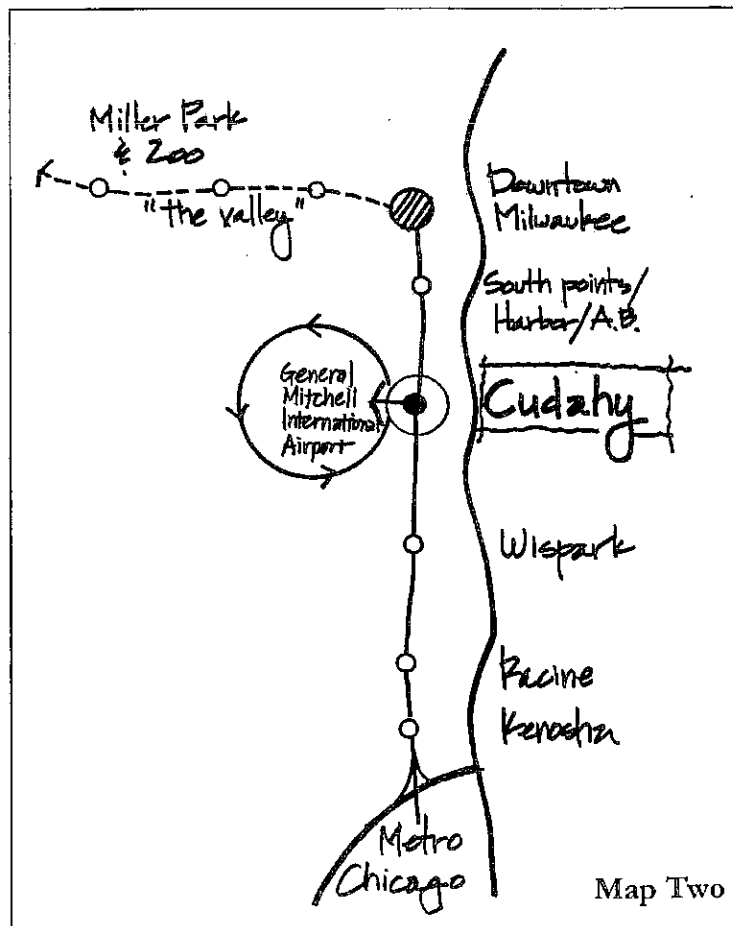 Miller Park
& Zoo
"the valley"
Downtown
Milwaukee
South points/
Harbor/A.B.
General
Mitchell
International
Airport
Cudahy
Wispark
Racine
Kenosha
Metro
Chicago
Map Two